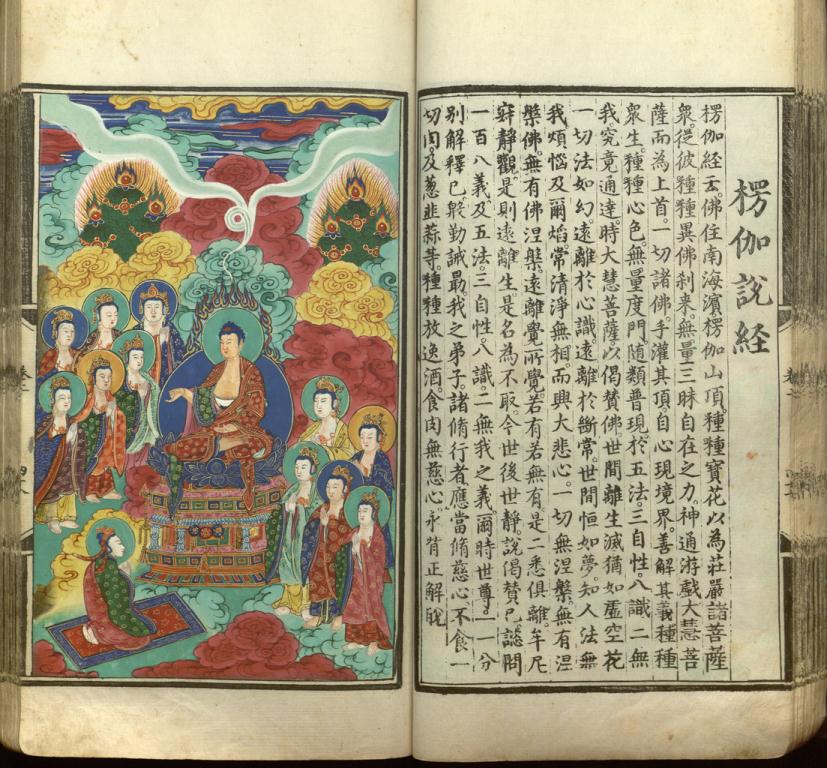 楞伽説経
楞伽經云。佛住南海濱楞伽山頂。種種寶花以為莊嚴諸菩薩
衆。從彼種種異佛刹来。無量三昧自在之力。神通游戲大慧菩
薩而為上首。一切諸佛。手灌其頂。自心現境界。善解其義種種
衆生。種種心色。無量度門。随類普現。於五法。三自性。八識二無
我究竟通達。時大慧菩薩。以偈賛佛世間離生滅猶如虛空花
一切法如幻。遠離於心識。遠離於斷常。世間恒如夢。知人法無
我煩惱及爾焰。常清淨無相。而興大悲心。一切無涅槃。無有涅
槃佛。無有佛涅槃。遠離覺所覺。若有若無有。是二悉俱離。牟尼
寂靜觀。是則遠離生。是名為不取。今世後世靜。說偈賛已。諮問
一百八義。及五法。三自性。八識。二無我之義。爾時世尊。一一分
別解釋已。勤誡勗我之弟子。諸脩行者。應當脩慈心。不食一
切肉。及葱韭蒜等。種種放逸酒。食肉無慈心。永背正解脫